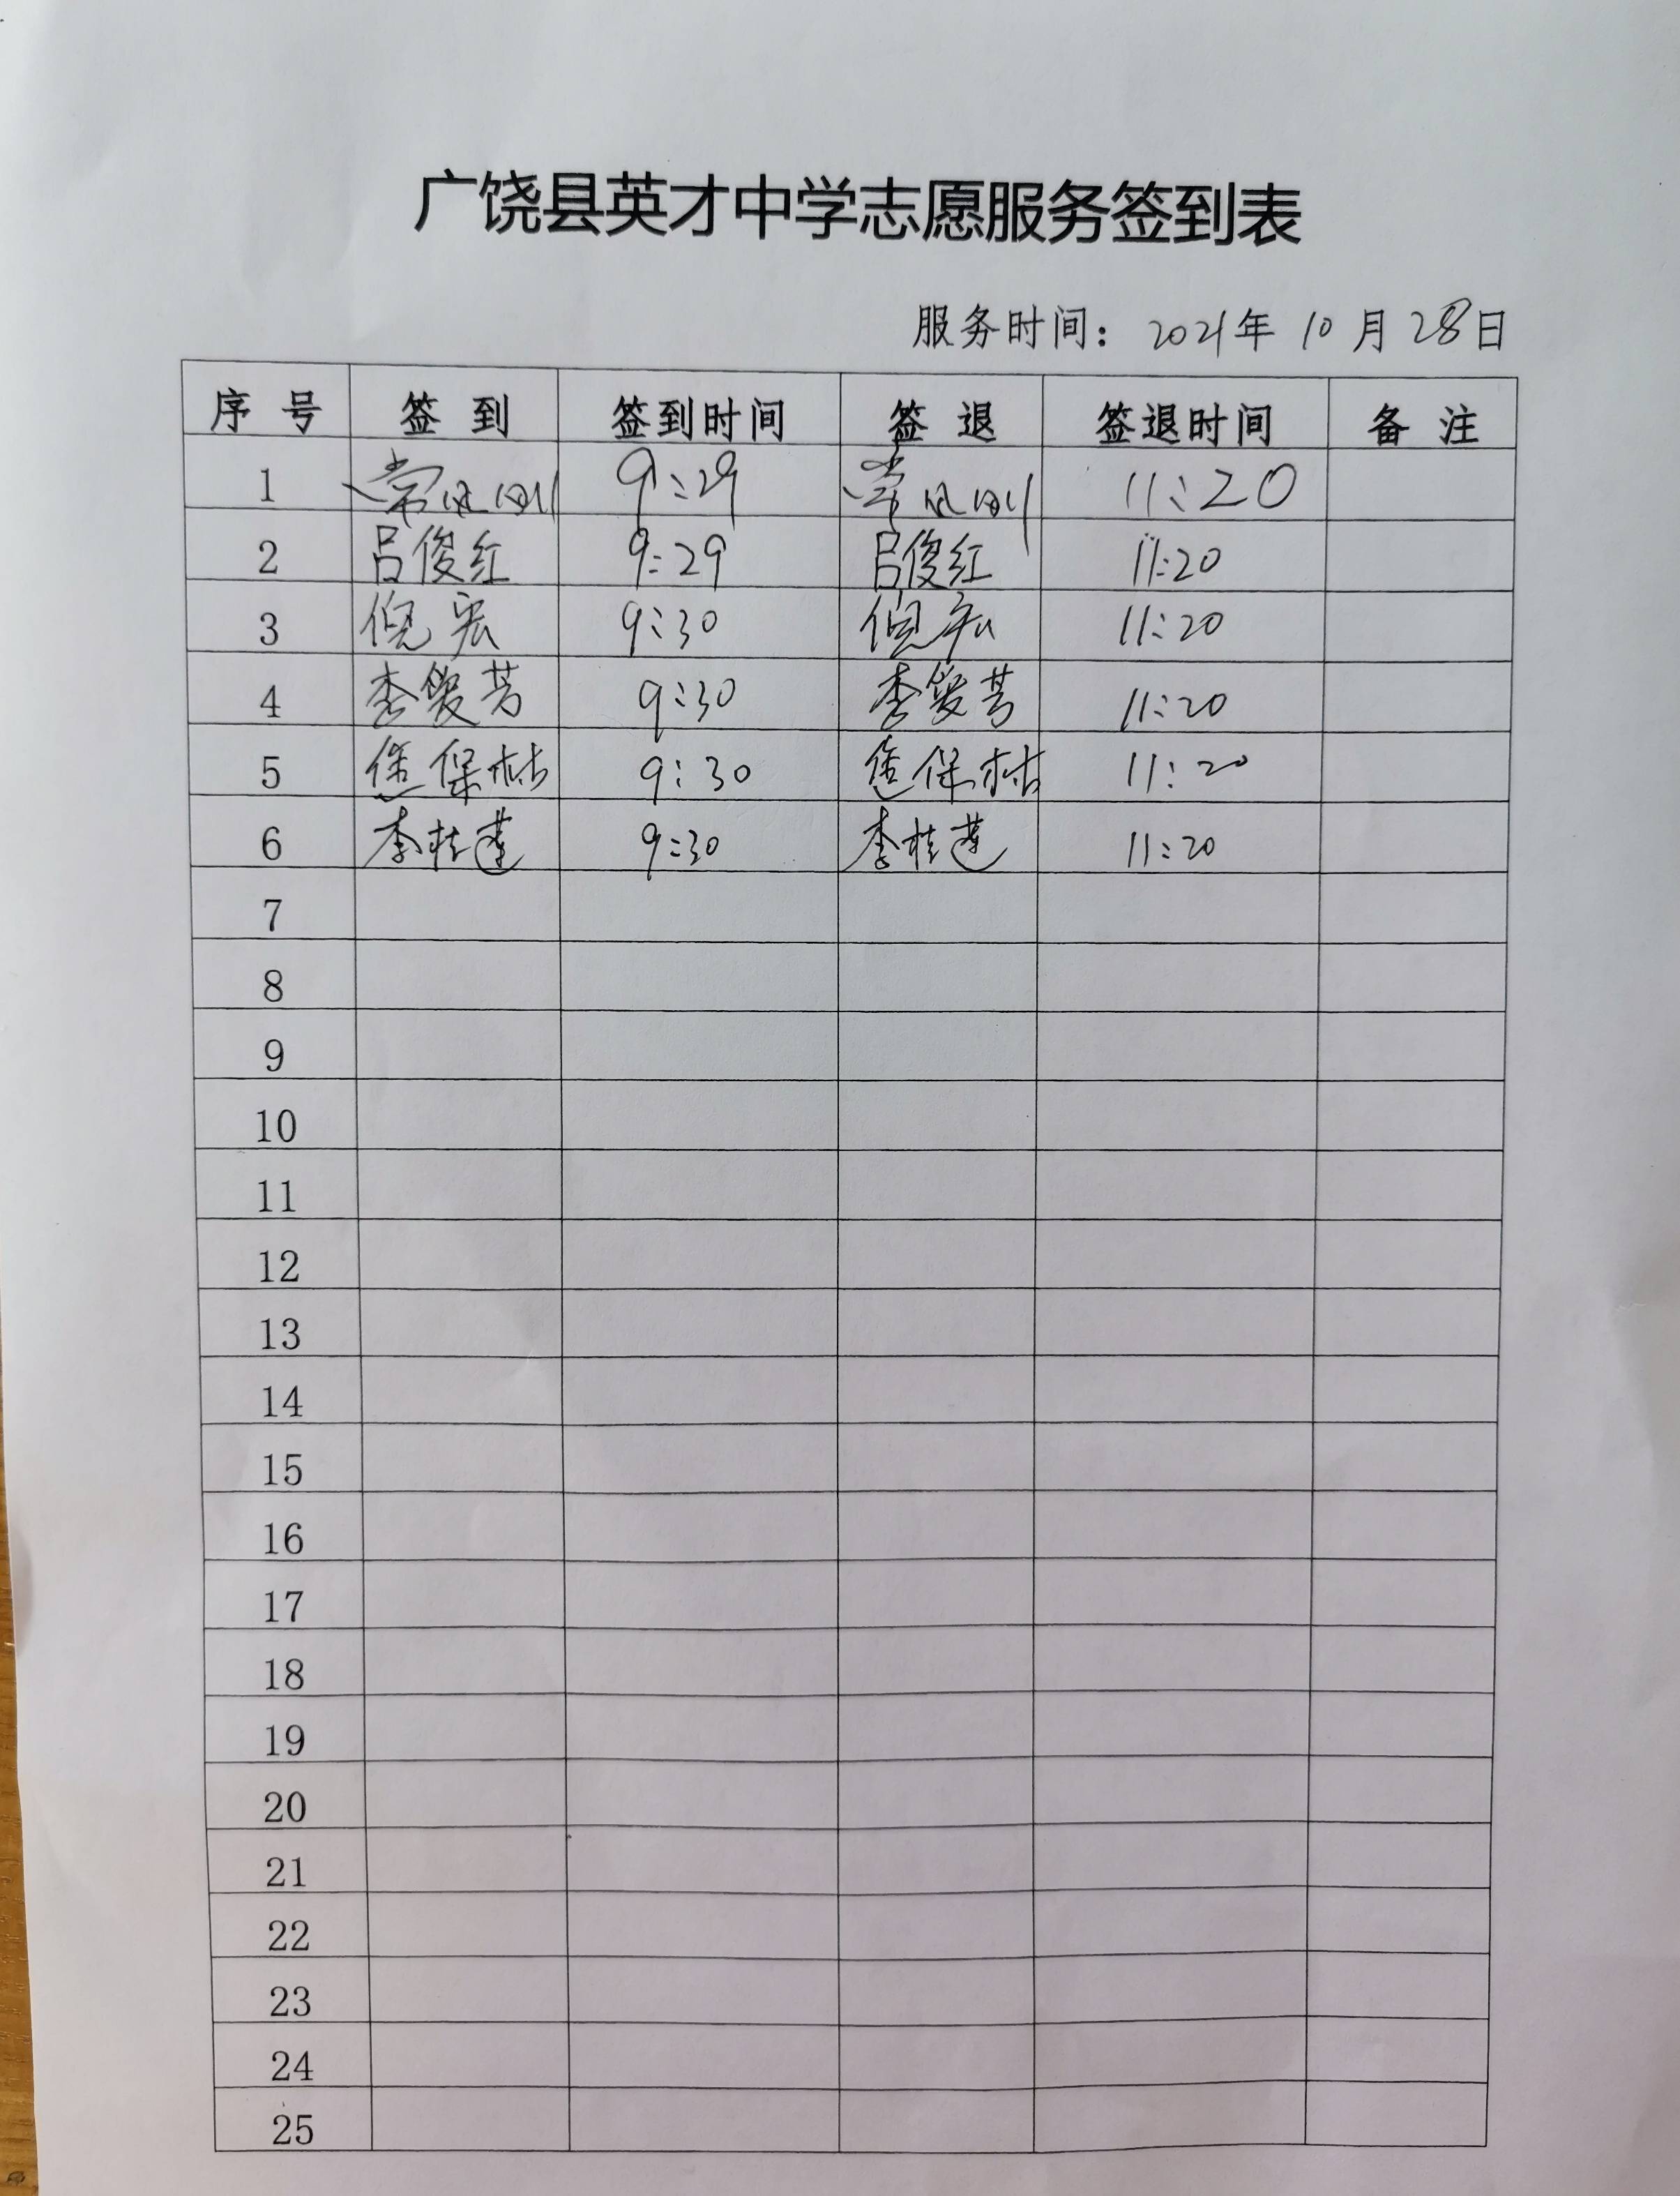 广饶县英才中学志愿服务签到表
服务时间：2021年 10 月 28日
序 号 签 到 签到时间 签 退 签退时间 备 注
1 常风刚 9:29 常风刚 11:20
2 吕俊红 9:29 吕俊红 11:20
3 倪宏 9:30 倪宏 11:20
4 李爱芳 9:30 李爱芳 11:20
5 保林 9:30 保林 11:20
6 李桂莲 9:30 李桂莲 11:20
7
8
9
10
11
12
13
14
15
16
17
18
19
20
21
22
23
24
25